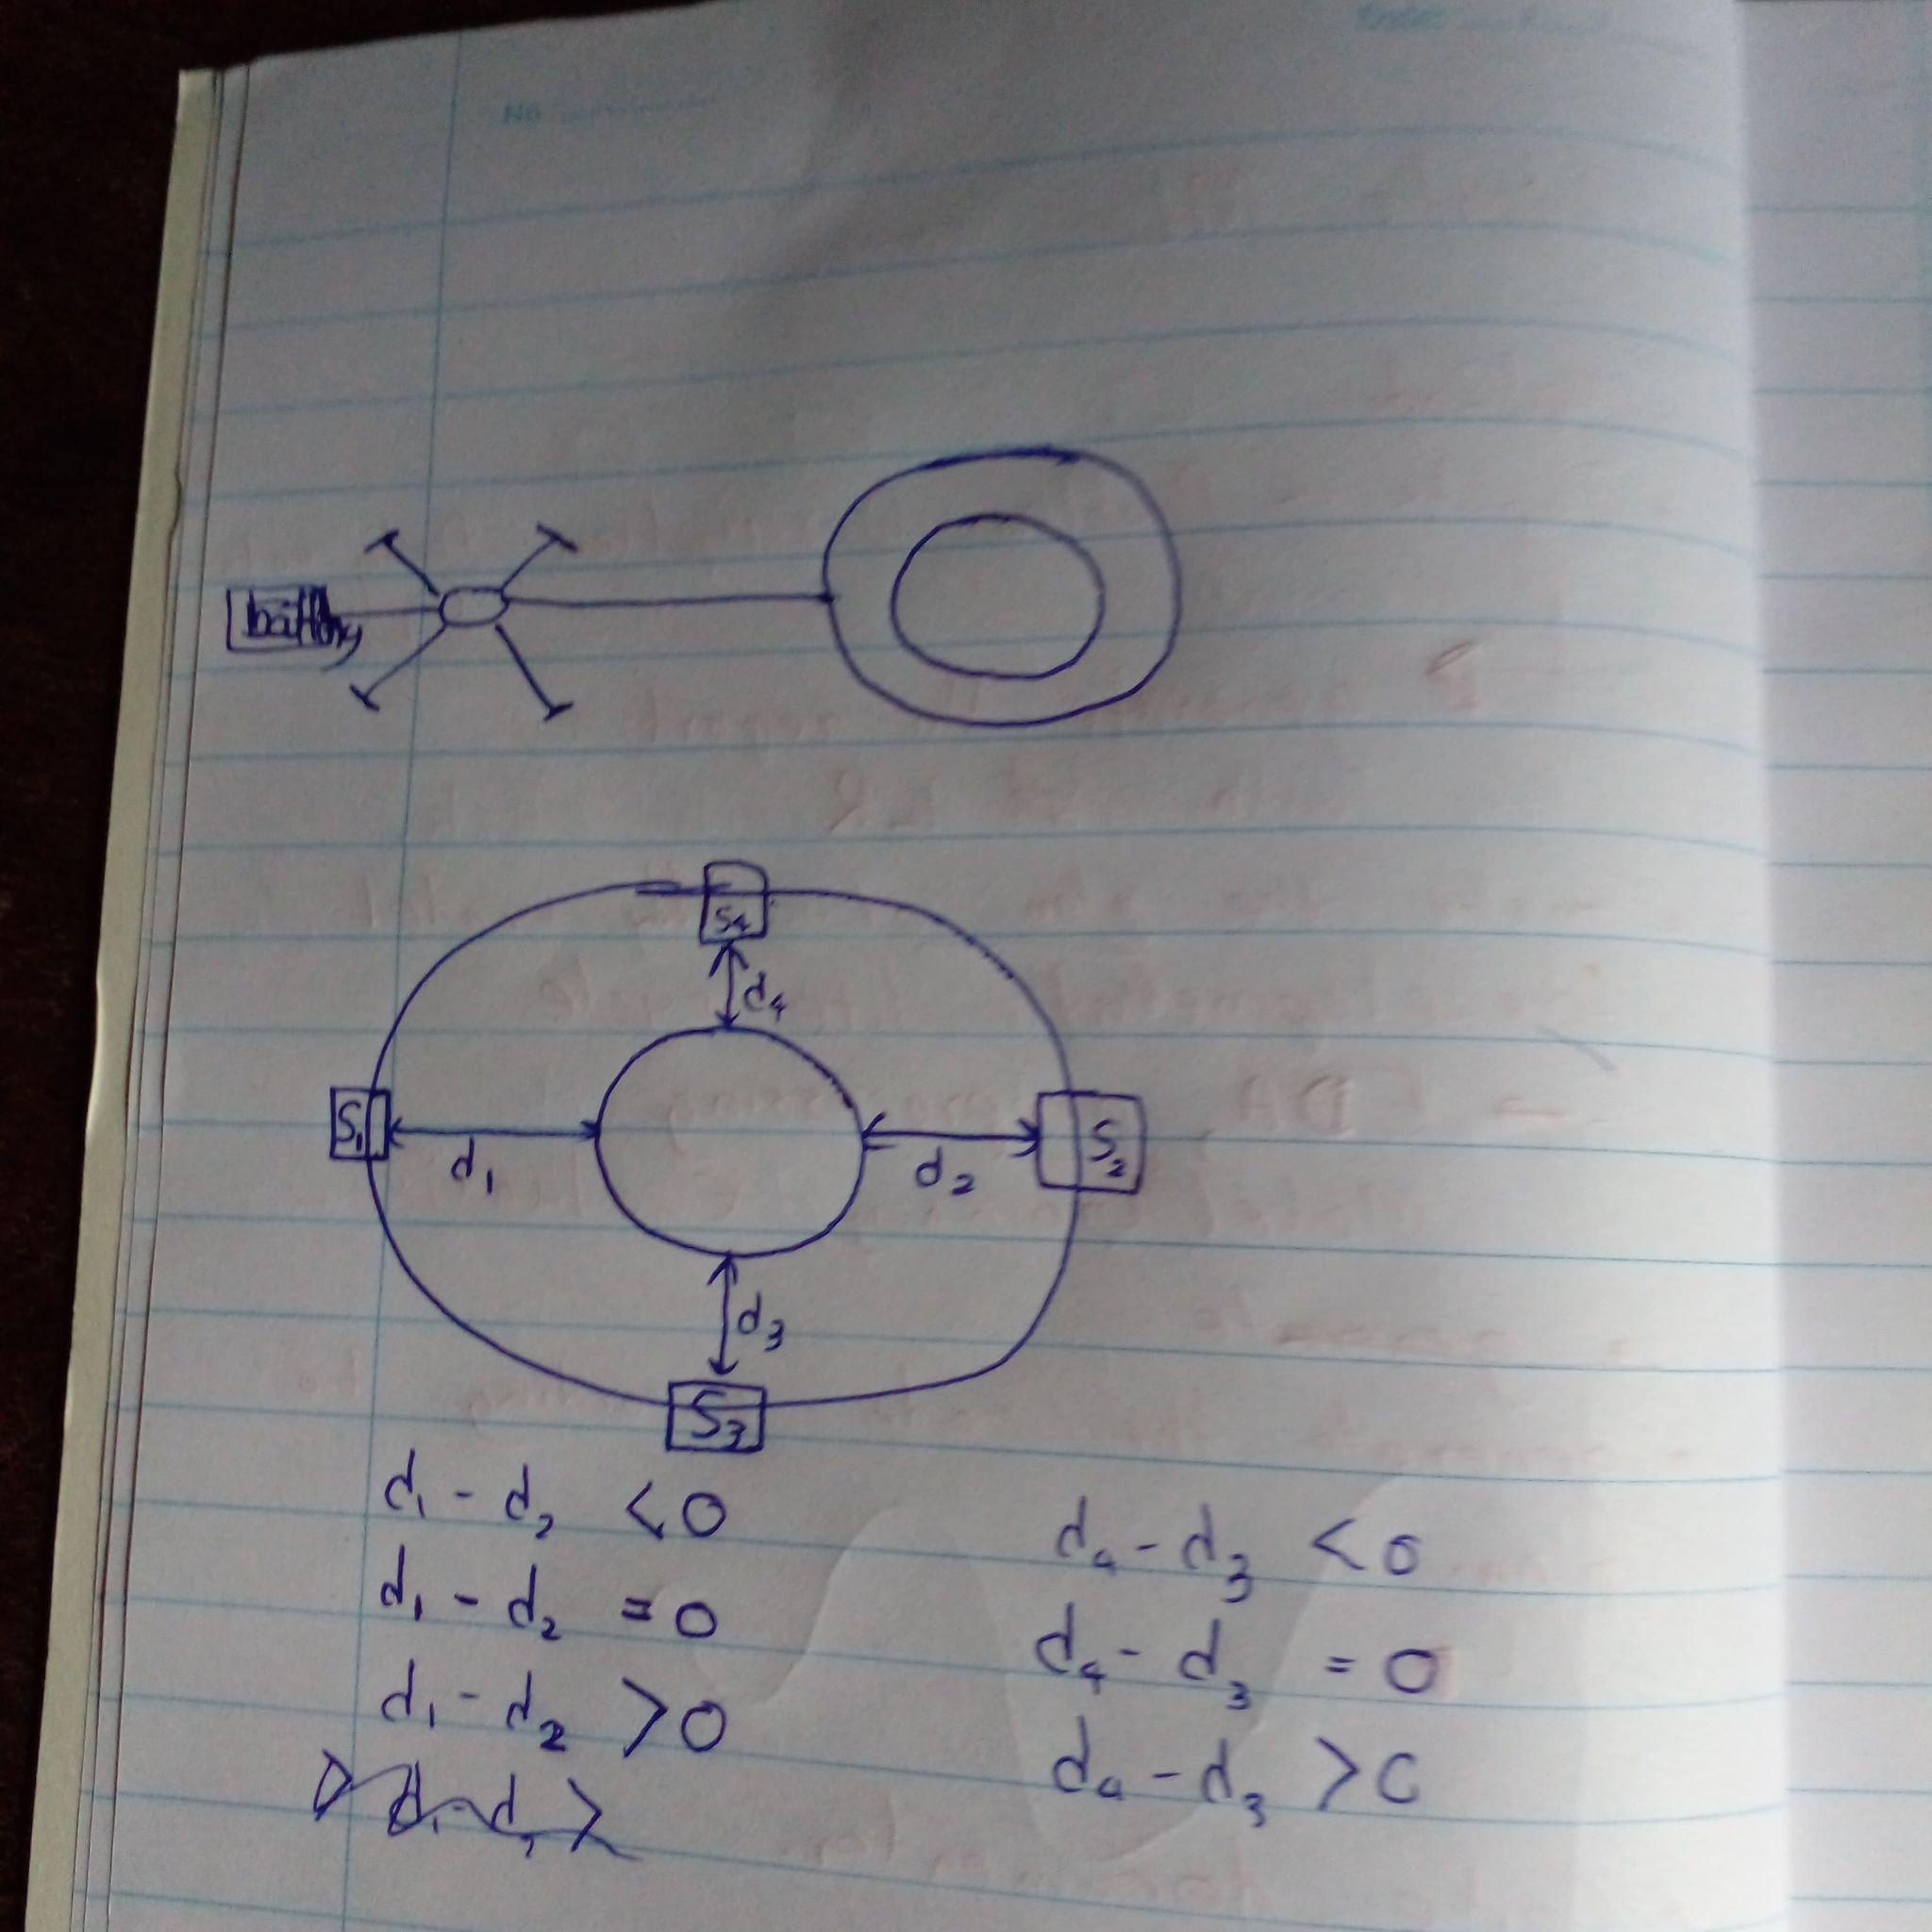 No
battery
S4
d4
S1
S2
d1
d2
d3
S3
d1 - d2 < 0
d1 - d2 = 0
d1 - d2 > 0
d4 - d3 < 0
d4 - d3 = 0
d4 - d3 > 0